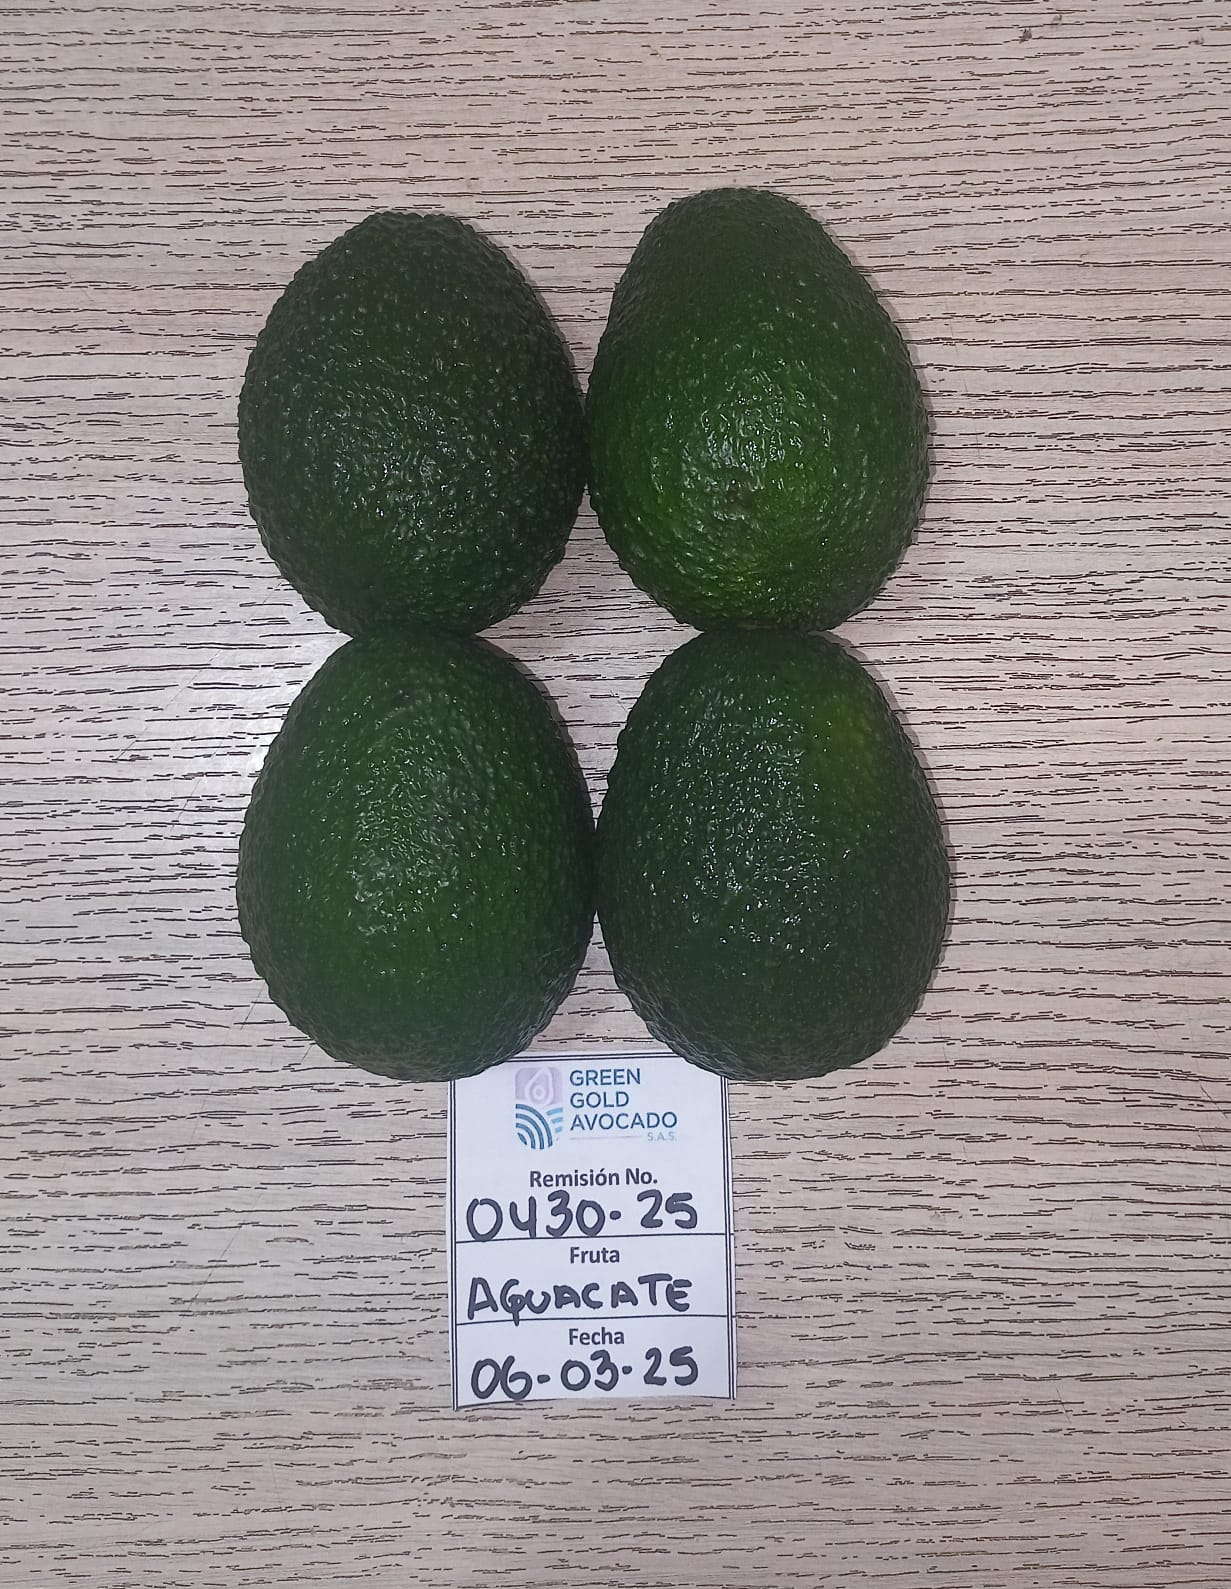 GREEN
GOLD
AVOCADO
S.A.S.
Remisión No.
0430-25
Fruta
AGUACATE
Fecha
06-03-25